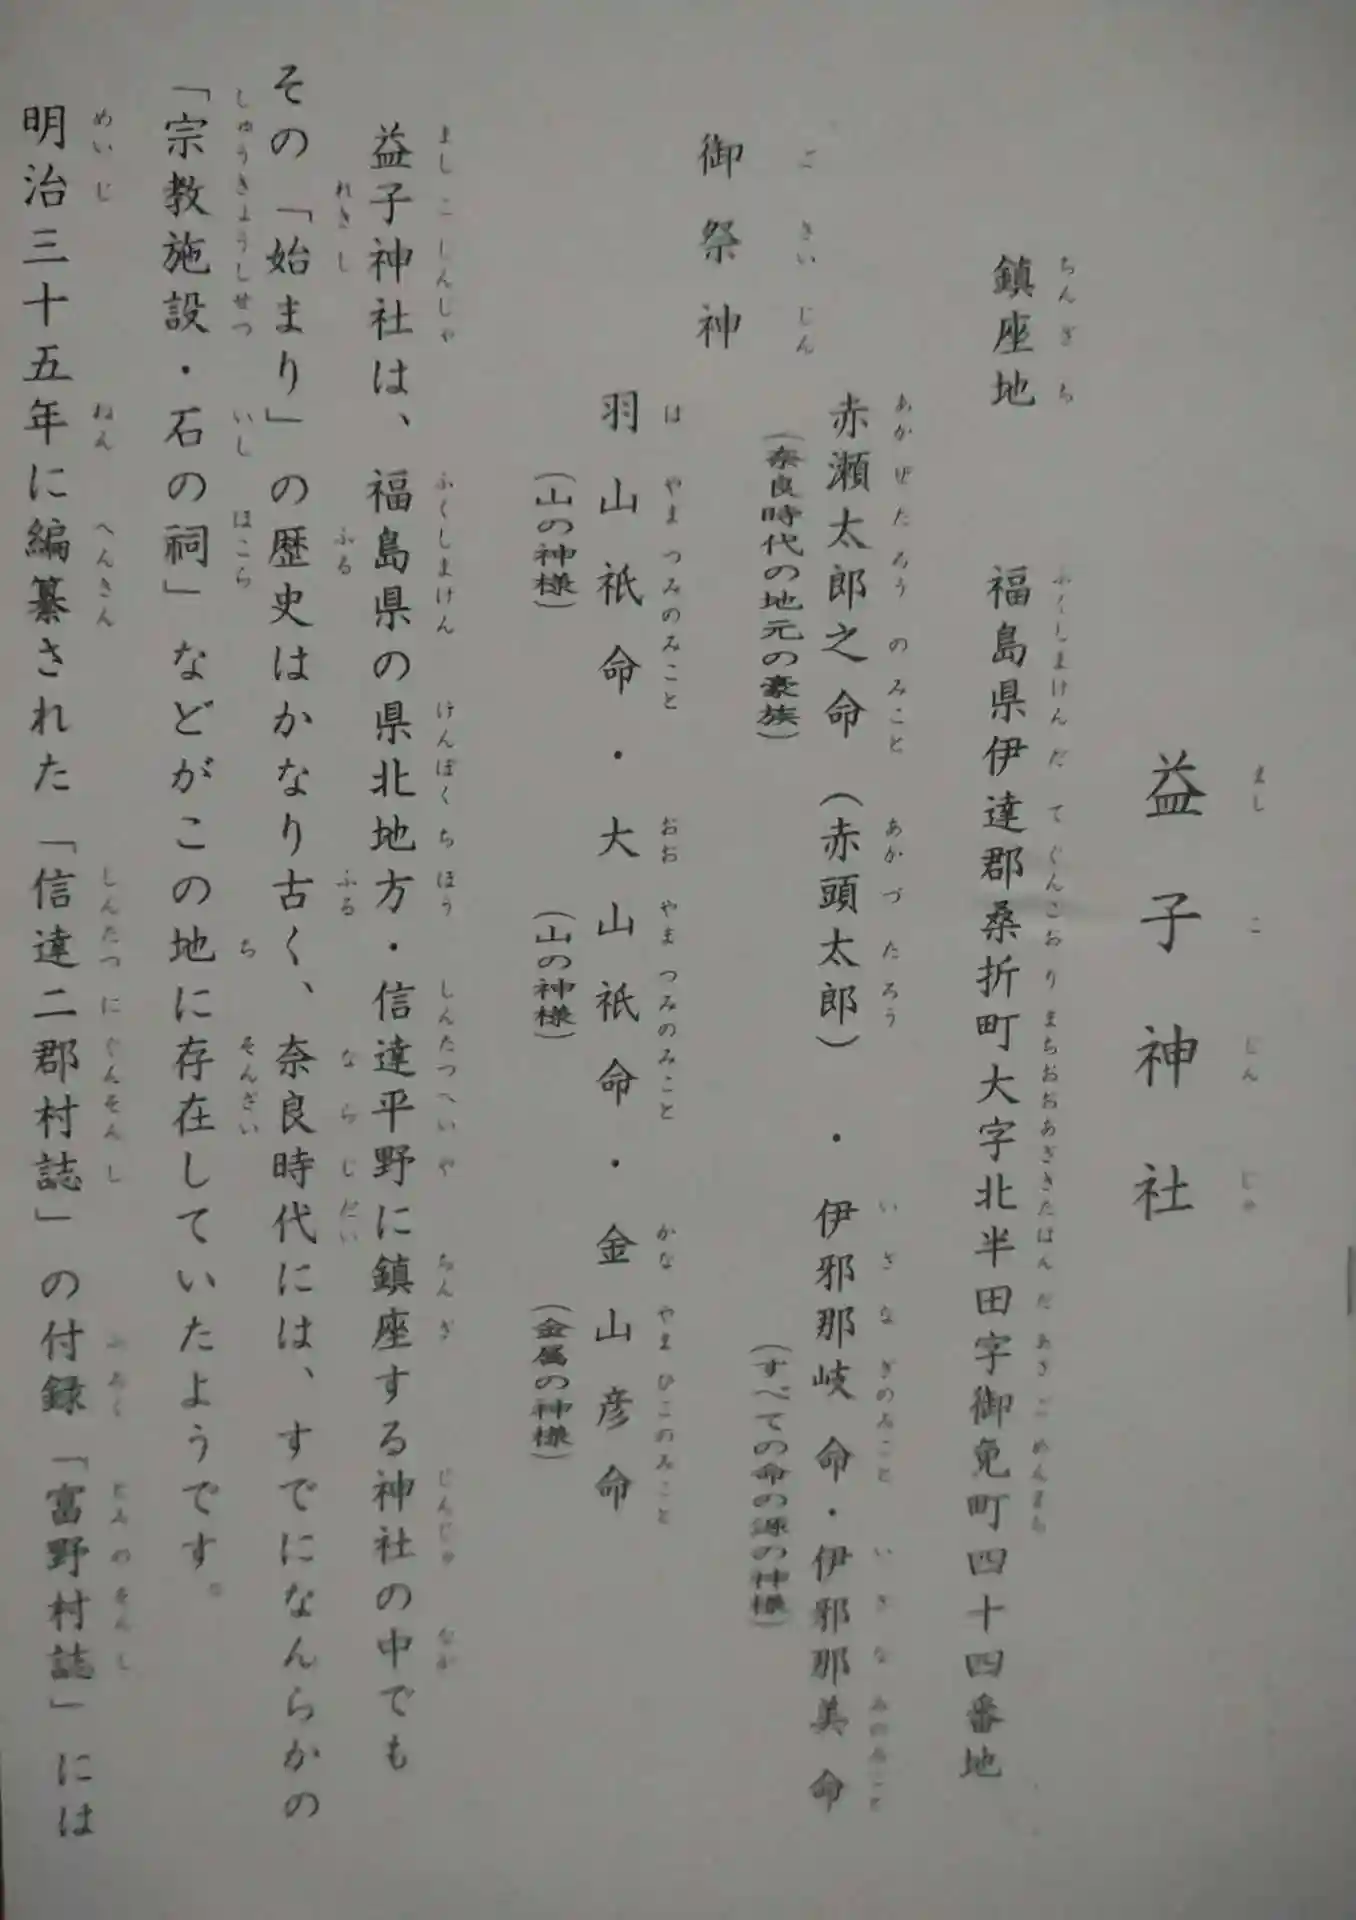 益子神社
鎮座地　福島県伊達郡桑折町大字北半田字御免町四十四番地
御祭神
赤瀬太郎之命（赤頭太郎）・伊邪那岐命・伊邪那美命
（奈良時代の地元の豪族）　（すべての命の源の神様）
羽山祇命・大山祇命・金山彦命
（山の神様）　（山の神様）　（金属の神様）
益子神社は、福島県の県北地方・信達平野に鎮座する神社の中でも
その「始まり」の歴史はかなり古く、奈良時代には、すでになんらかの
「宗教施設・石の祠」などがこの地に存在していたようです。
明治三十五年に編纂された「信達二郡村誌」の付録「富野村誌」には